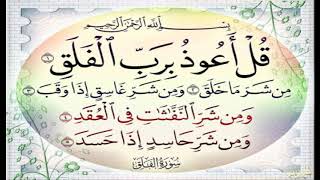 بِسْمِ اللَّهِ الرَّحْمَٰنِ الرَّحِيمِ
قُلْ أَعُوذُ بِرَبِّ الْفَلَقِ ۝١
مِن شَرِّ مَا خَلَقَ ۝٢ وَمِن شَرِّ غَاسِقٍ إِذَا وَقَبَ ۝٣
وَمِن شَرِّ النَّفَّاثَاتِ فِي الْعُقَدِ ۝٤
وَمِن شَرِّ حَاسِدٍ إِذَا حَسَدَ ۝٥
سُورَةُ الفَلَقِ